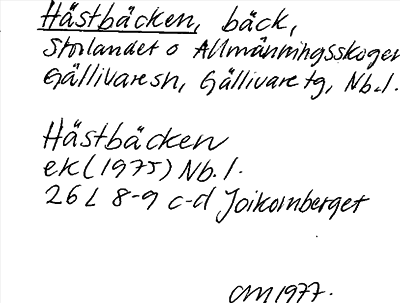 Hästbäcken, bäck,
Storlandet o Allmänningsskogen
Gällivare sn, Gällivare tg, Nb.l.
Hästbäcken
ek (1975) Nb.l.
26 L 8-9 c-d Joikornberget
CM 1977.